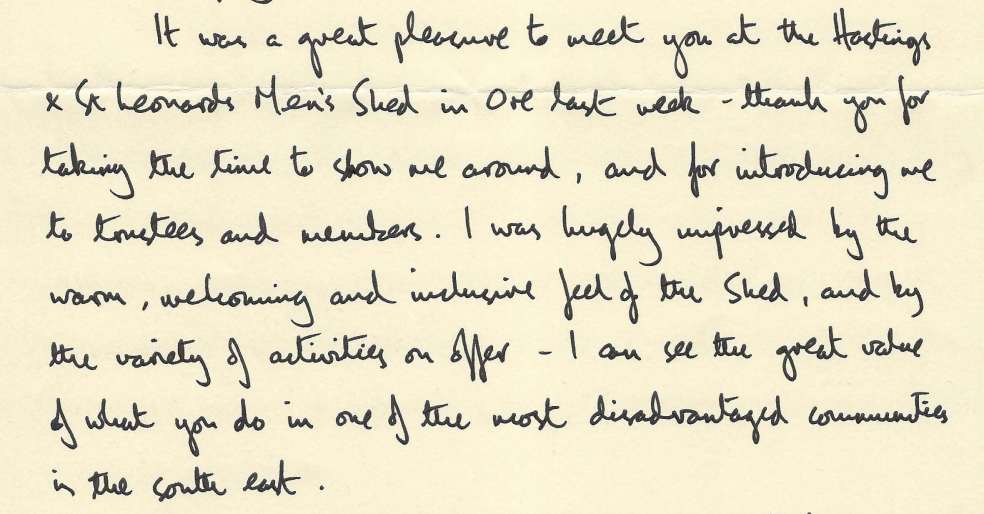 It was a great pleasure to meet you at the Hastings
& St Leonards Men's Shed in Ore last week - thank you for
taking the time to show me around, and for introducing me
to trustees and members. I was hugely impressed by the
warm, welcoming and inclusive feel of the Shed, and by
the variety of activities on offer - I can see the great value
of what you do in one of the most disadvantaged communities
in the south east.